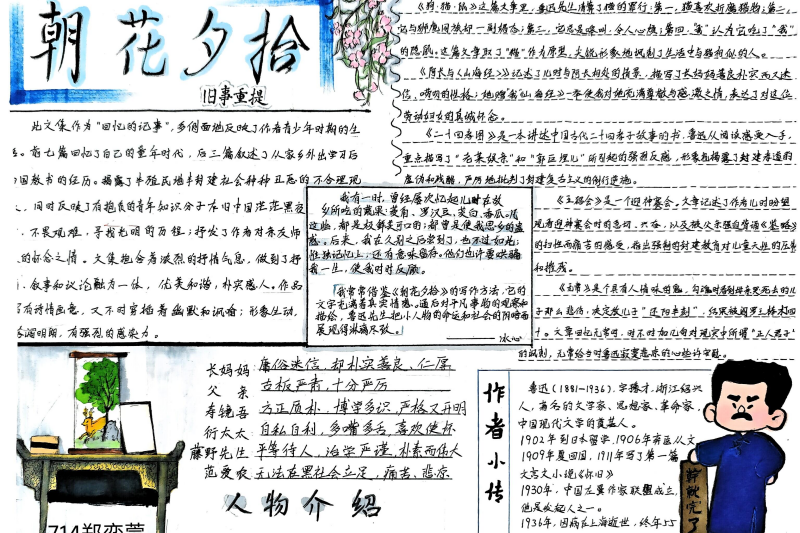 朝花夕拾
旧事重提
此文集作为"回忆的记事",多侧面地反映了作者青少年时期的生
前七篇回忆了自己的童年时代,后三篇叙述了从家乡外出学习后
国教书的经历。揭露了半殖民地半封建社会种种丑恶的不合理现
同时反映了有抱负的青年知识分子在旧中国茫茫黑夜
不畏艰难,寻找光明的历程;抒发了作者对亲友师
文集饱含着浓烈的抒情气息,做到了抒
叙事和议论融为一体,优美和谐,朴实感人。作品
有诗情画意,又不时穿插着幽默和讽喻;形象生动,
明朗,有强烈的感染力。
我有一时,曾经屡次忆起儿时在故
乡所吃的蔬果:菱角、罗汉豆、茭白、香瓜。凡
这些,都是极鲜美可口的;都曾是使我思乡的蛊
惑。后来,我在久别之后尝到了,也不过如此;
惟独记忆上,还有旧来的意味留存。他们也许要哄骗
我一生,使我时时反顾。
我常常借鉴《朝花夕拾》的写作方法,它的
文字充满着真实情感。通后对平凡事物的观察和
描绘,鲁迅先生把小人物的命运和社会的阴暗面
展现得淋漓尽致。
——冰心
《狗·猫·鼠》这篇文章里,鲁迅先生清算了猫的罪行:第一,猫喜欢折磨猎物;第二,
它与狮虎同族却一副媚态;第三,它总是嚎叫,令人心烦;第四,"我"认为它吃了"我"
的隐鼠。这篇文章取了"猫"作为原型,尖锐形象地讽刺了生活中与猫相似的人。
《阿长与〈山海经〉》记述了儿时与阿长相处的情景,描写了长妈妈善良朴实而又迷
信、唠叨的性格;她赠我《山海经》一事使我对她充满尊敬与感激之情,表达了对这位
劳动妇女的真诚怀念。
《二十四孝图》是一本讲述中国古代二十四孝子故事的书,鲁迅从阅读感受入手,
重点描写了"老莱娱亲"和"郭巨埋儿"所引起的强烈反感,形象地揭露了封建孝道的
虚伪和残酷,严厉地批判了封建复古主义的倒行逆施。
《五猖会》是一个迎神赛会,文章记述了作者儿时盼望
观看迎神赛会时的急切、兴奋,以及被父亲强迫背诵《鉴略》
的扫性而痛苦的感受,指出强制的封建教育对儿童天性的压制
和摧残。
《无常》是个具有人情味的鬼,
文章回忆无常时,不时加几句对现实中所谓"正人君子"
的讽刺,无常给当时鲁迅寂寞悲凉的心些许安慰。
长妈妈 庸俗迷信,却朴实善良、仁厚
父 亲 古板严肃,十分严厉
寿镜吾 方正质朴、博学多识、严格又开明
衍太太 自私自利,多嘴多舌,喜欢使坏
藤野先生 平等待人,治学严谨,朴素而伟大
范爱农 无法在黑社会立足,痛苦、悲凉
人物介绍
714郑奕萱
作者小传
鲁迅(1881-1936),字豫才,浙江绍兴
人,著名的文学家、思想家、革命家,
中国现代文学的奠基人。
1902年到日本留学,1906年弃医从文
1909年夏回国,1911年写了第一篇
文言文小说《怀旧》
1930年,中国左翼作家联盟成立,
他是发起人之一。
1936年,因病在上海逝世,终年55